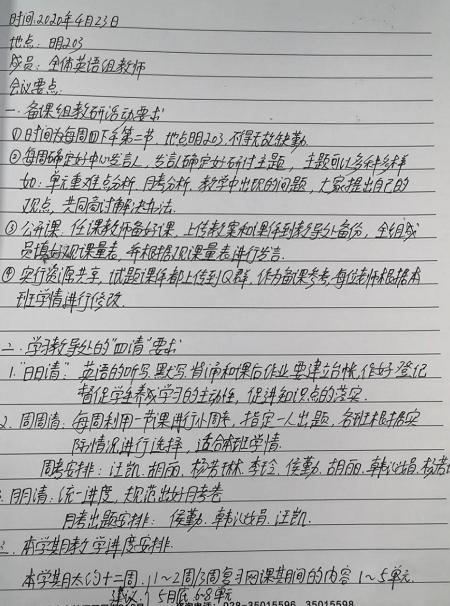 时间:2020年4月23日
地点:明203
成员:全体英语组教师
会议要点:
一、备课组教研活动要求
①时间为每周四下午第二节,地点明203,不得无故缺勤。
②每周确定好中心发言人,发言人确定好研讨主题,主题可以多种多样
如:单元重难点分析,月考分析,教学中出现的问题,大家提出自己的
观点,共同商讨解决办法.
③公开课,任课教师备好课,上传教案和课件到教导处备份,全组成
员填好观课量表,并根据观课量表进行发言.
④实行资源共享,试题课件都上传到Q群,作为备课参考,每位老师根据本
班学情进行修改.
二、学习教导处的"四清"要求
1."日日清":英语的听写,默写,背诵和课后作业,要建立台帐,作好登记
督促学生养成学习的主动性,促进知识点的落实.
2.周周清:每周利用一节课进行小周考,指定一人出题,各班根据实
际情况进行选择,适合本班学情.
周考安排:汪凯.胡丽.杨芳琳.李玲.侯勤.胡丽.韩 杨芳
3.月月清:统一进度,规范出好月考卷
月考出题安排:侯勤.韩 汪凯.
三.本学期教学进度安排.
本学期大约十二周,1~2周 复习网课期间的内容1~5单元.
建议 5月底6-8单元
028-35015596 35015598